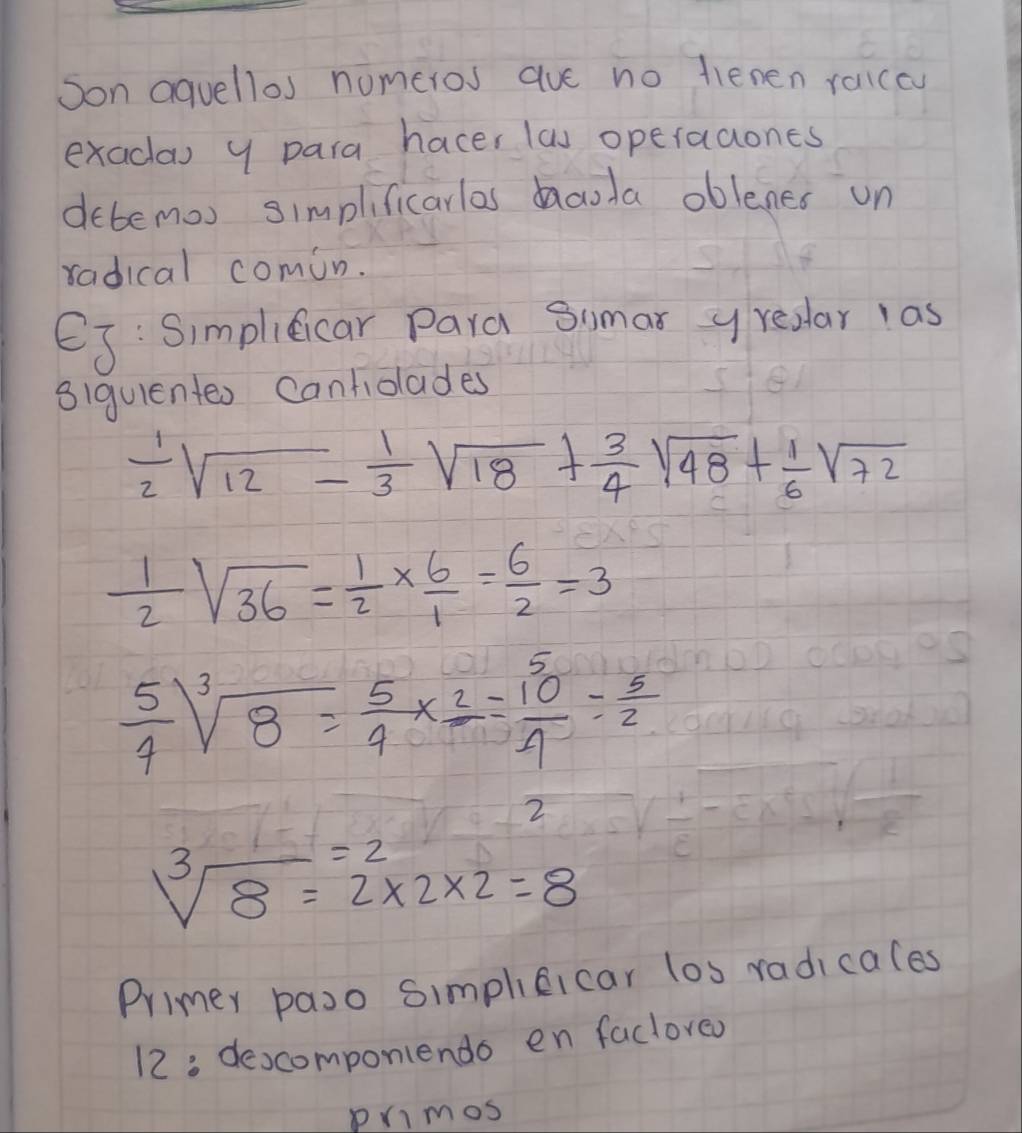 Son aquellos números que no tienen raices
exactas y para hacer las operaciones
debemos simplificarlas hasta obtener un
radical común.
Ej: Simplificar para Sumar y restar las
siguientes cantidades
1/2 √12 - 1/3 √18 + 3/4 √48 + 1/6 √72
1/2 √36 = 1/2 × 6/1 = 6/2 = 3
5/4 ∛8 = 5/4 × 2 = 10/4 = 5/2
5
2
∛8 = 2
= 2×2×2 = 8
Primer paso simplificar los radicales
12: descomponiendo en factores
primos